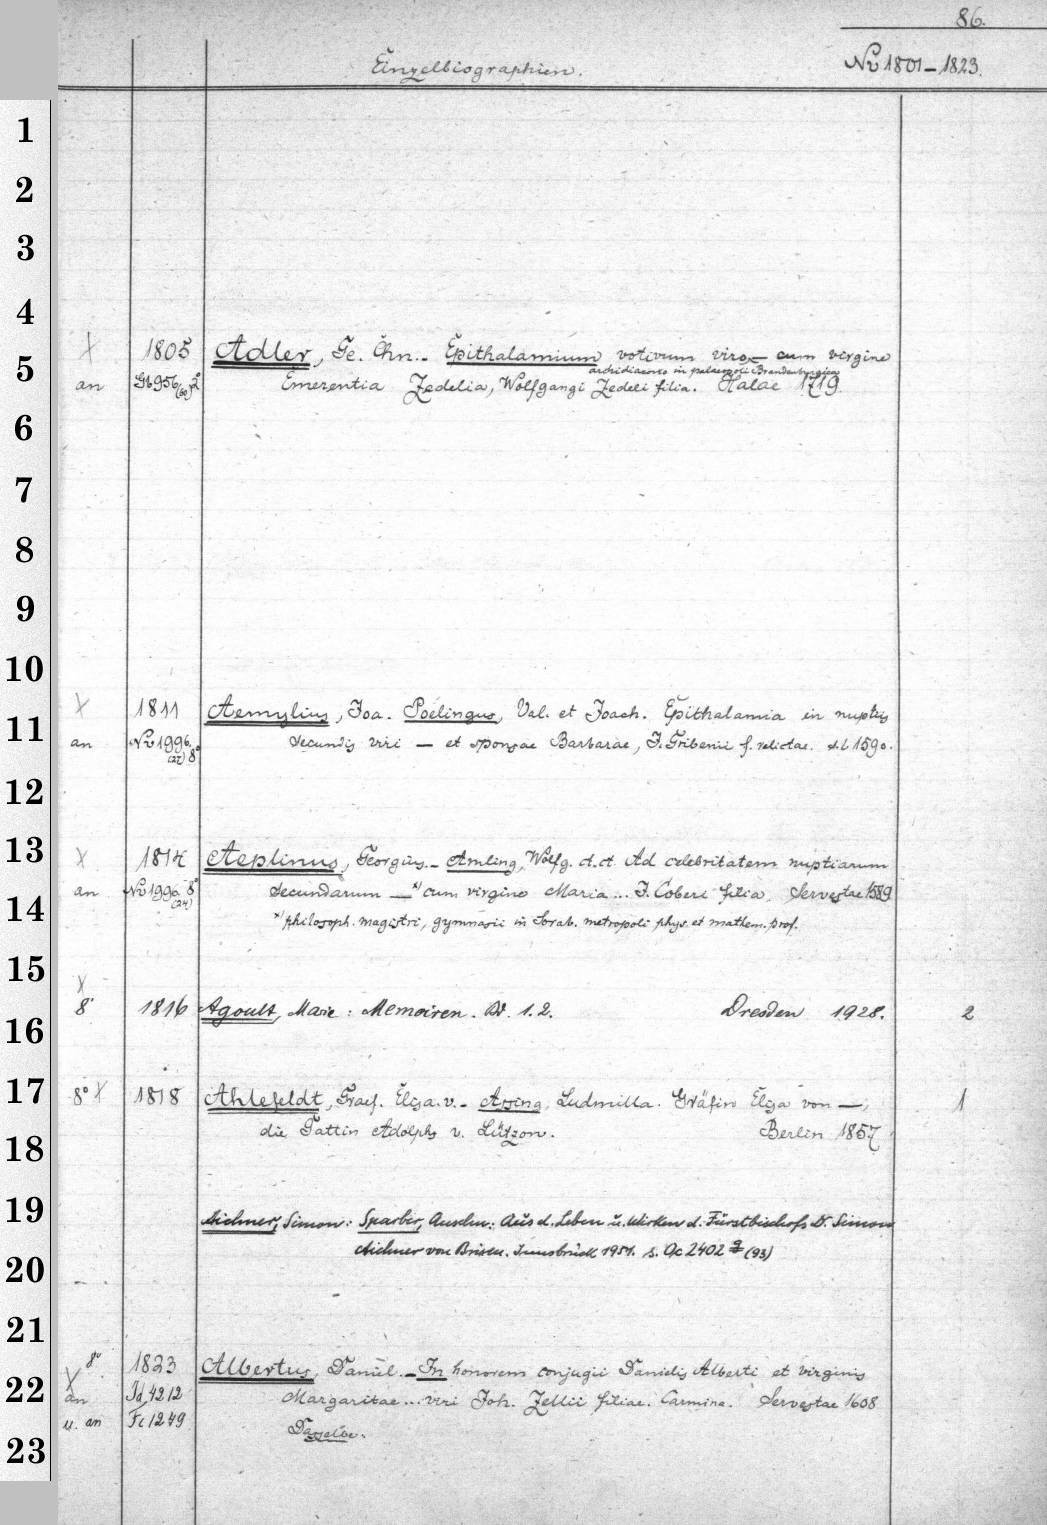 86.
Einzelbiographien. Nr 1801-1823.
1
2
3
4
X 1805 Adler, Ge. Chn. - Epithalamium votivum viro — cum virgine
5
archidiacono in palaeopoli Brandenburgica
an Gb 956(60) 2° Emerentia Zedelia, Wolfgangi Zedeli filia. Halae 1719.
6
7
8
9
10
X 1811 Aemylius, Joa. Poëlingus, Val. et Joach. Epithalamia in nuptiis
11
an Nr 1996(27) 8° secundis viri — et sponsae Barbarae, J. Gribenii f. relictae. s.l. 1590.
12
13
X 1814 Aeplinus, Georgius. - Amling, Wolfg. et.ct. Ad celebritatem nuptiarum
an Nr 1996(24) 8° secundarum — x) cum virgine Maria... J. Coberi filia. Servestae 1589
14
x) philosoph. magistri, gymnasii in Sorab. metropoli phys. et mathem. prof.
15
X
8° 1816 Agoult, Marie: Memoiren. Bd. 1.2. Dresden 1928. 2
16
17
8° X 1818 Ahlefeldt, Graef. Elisa. v. - Assing, Ludmilla. Gräfin Elisa von —, 1
die Gattin Adolphs v. Lützow. Berlin 1857
18
19
Aichner, Simon: Sparber, Anselm: Aus d. Leben u. Wirken d. Fürstbischofs Dr. Simon
Aichner von Brixen. Innsbruck 1951. s. Ac 2402 (93)
20
21
8° 1823 Albertus, Daniel. - In honorem conjugii Danielis Alberti et virginis
X
22
an Id 4212 Margaritae... viri Joh. Zellii filiae. Carmina. Servestae 1608
u. an Fc 1249 Dasselbe.
23